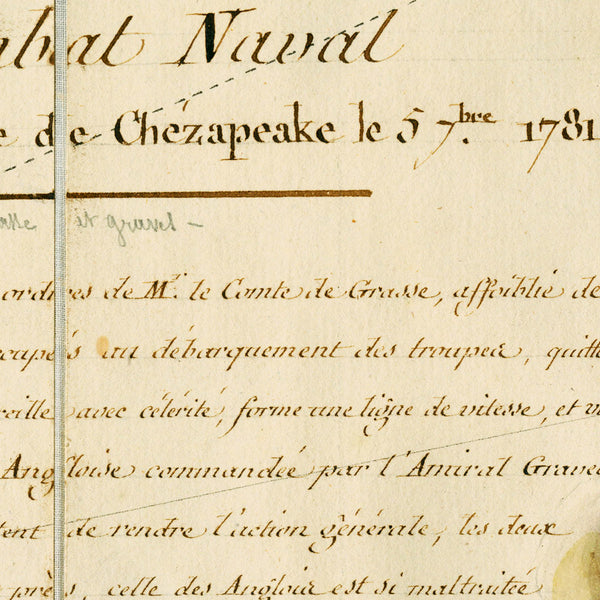 Naval
de Chézapeake le 5 7.bre 1781
et graves —
ordres de Mr. le Comte de Grasse, affoiblie de
au débarquement des troupes, quitte
avec célérité, forme une ligne de vitesse, et
Angloise commandée par l'Amiral Graves
de rendre l'action générale, les deux
près, celle des Anglois est si maltraitée